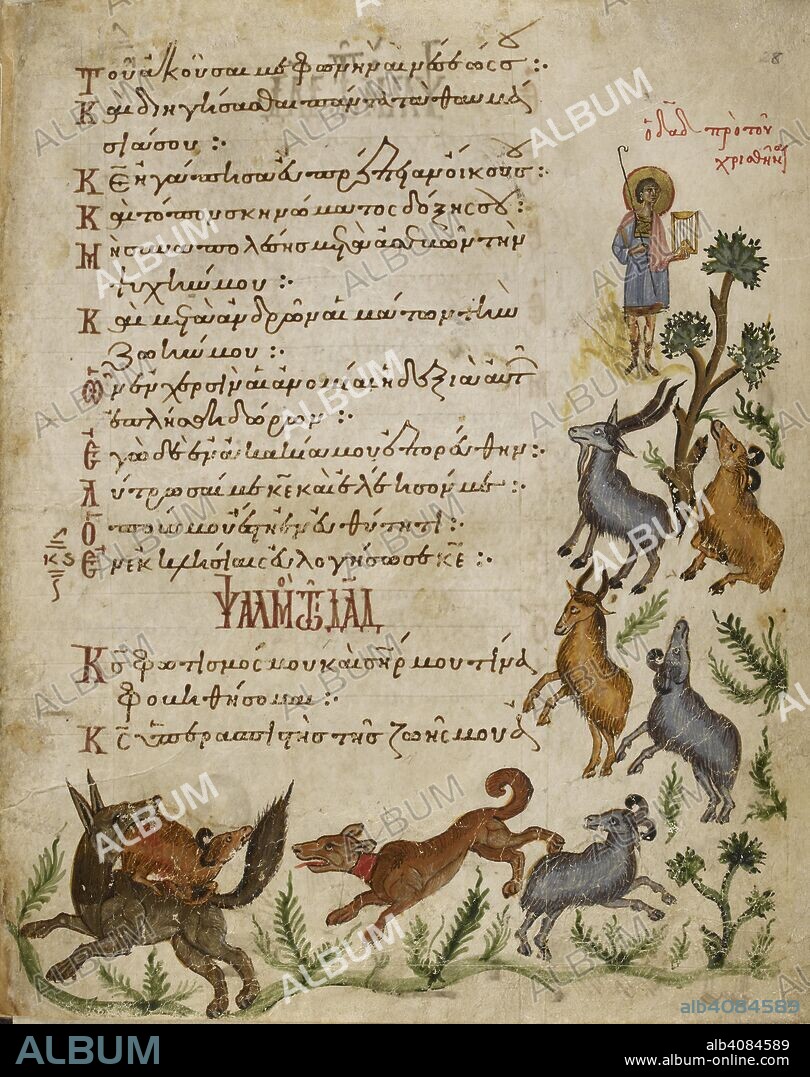 28
ὁ δαδ πρὸ τοῦ
χρισθῆναι
Τοῦ ἀκοῦσαι με φωνῆς αἰνέσεώς σου :·
Καὶ διηγήσασθαι πάντα τὰ θαυμά
σιά σου :·
Κε ἠγάπησα εὐπρέπειαν οἴκου σου :·
Καὶ τόπον σκηνώματος δόξης σου :·
Μὴ συναπολέσῃς μετὰ ἀσεβῶν τὴν
ψυχήν μου :·
Καὶ μετὰ ἀνδρῶν αἱμάτων τὴν
ζωήν μου :·
Ὧν ἐν χερσὶν αἱ ἀνομίαι ἡ δεξιὰ αὐτῶν
ἐπλήσθη δώρων :·
Ἐγὼ δὲ ἐν ἀκακίᾳ μου ἐπορεύθην :·
Λύτρωσαί με κε καὶ ἐλέησόν με :·
Ὁ ποῦς μου ἔστη ἐν εὐθύτητι :·
Ἐν ἐκκλησίαις εὐλογήσω σε κε :·
κς
ΨΑΛΜΟC ΤΩ ΔΑΔ
Κς φωτισμός μου καὶ σηρ μου τίνα
φοβηθήσομαι :·
Κς ὑπερασπιστὴς τῆς ζωῆς μου ἀ
ALBUM
alb4084589
ALBUM
alb4084589
www.album-online.com